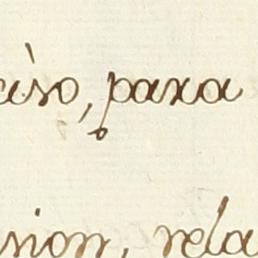 ciso, para
sion, rela